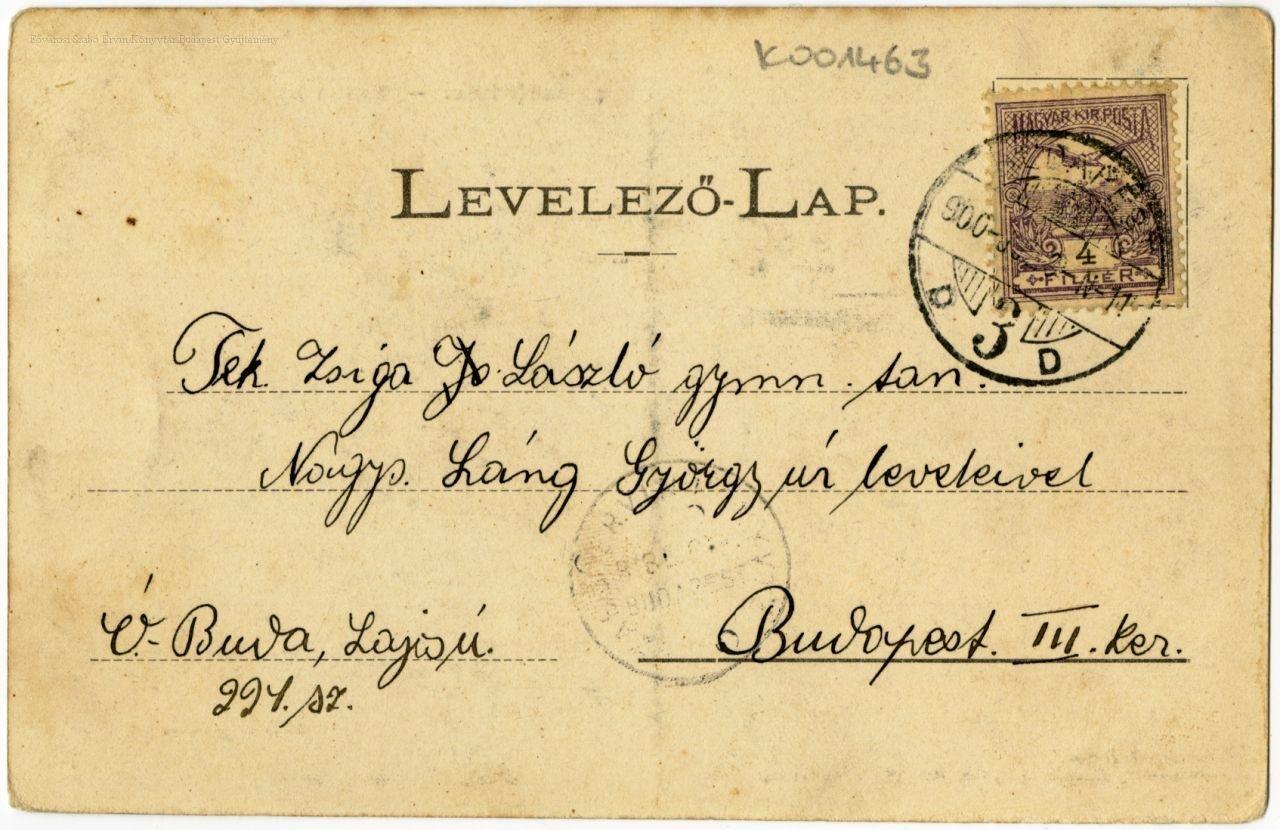 Fővárosi Szabó Ervin Könyvtár Budapest Gyűjtemény
K001463
MAGYAR KIR. POSTA
4
FILLÉR
LEVELEZŐ-LAP.
3
D
Tek. Zsiga László gymn. tan.
Nagys. Láng György úr leveleivel
Ó-Buda, Lajos ú.
221. sz.
Budapest. III. ker.